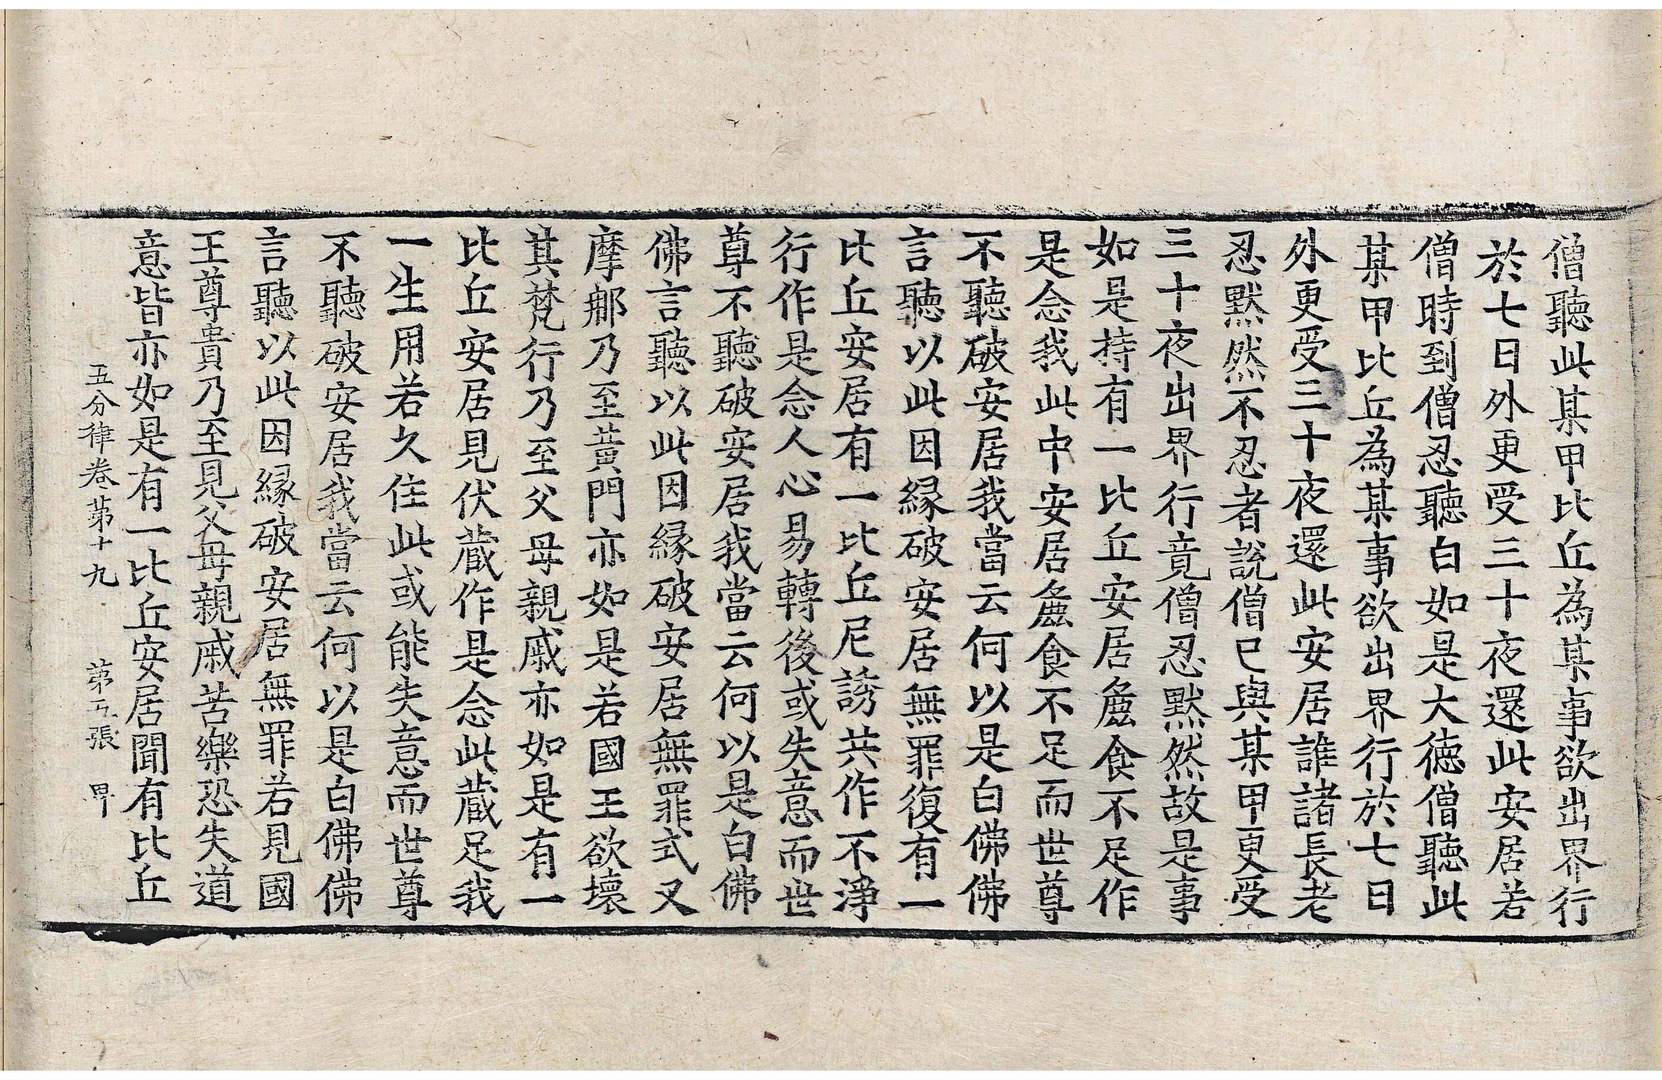 僧聽此某甲比丘為某事欲出界行
於七日外更受三十夜還此安居若
僧時到僧忍聽白如是大德僧聽此
某甲比丘為某事欲出界行於七日
外更受三十夜還此安居誰諸長老
忍默然不忍者說僧已與某甲更受
三十夜出界行竟僧忍默然故是事
如是持有一比丘安居麁食不足作
是念我此中安居麁食不足而世尊
不聽破安居我當云何以是白佛佛
言聽以此因緣破安居無罪復有一
比丘安居有一比丘尼誘共作不淨
行作是念人心易轉後或失意而世
尊不聽破安居我當云何以是白佛
佛言聽以此因緣破安居無罪式叉
摩那乃至黃門亦如是若國王欲壞
其梵行乃至父母親戚亦如是有一
比丘安居見伏藏作是念此藏足我
一生用若久住此或能失意而世尊
不聽破安居我當云何以是白佛佛
言聽以此因緣破安居無罪若見國
王尊貴乃至見父母親戚苦樂恐失道
意皆亦如是有一比丘安居聞有比丘
五分律卷第十九 第五張